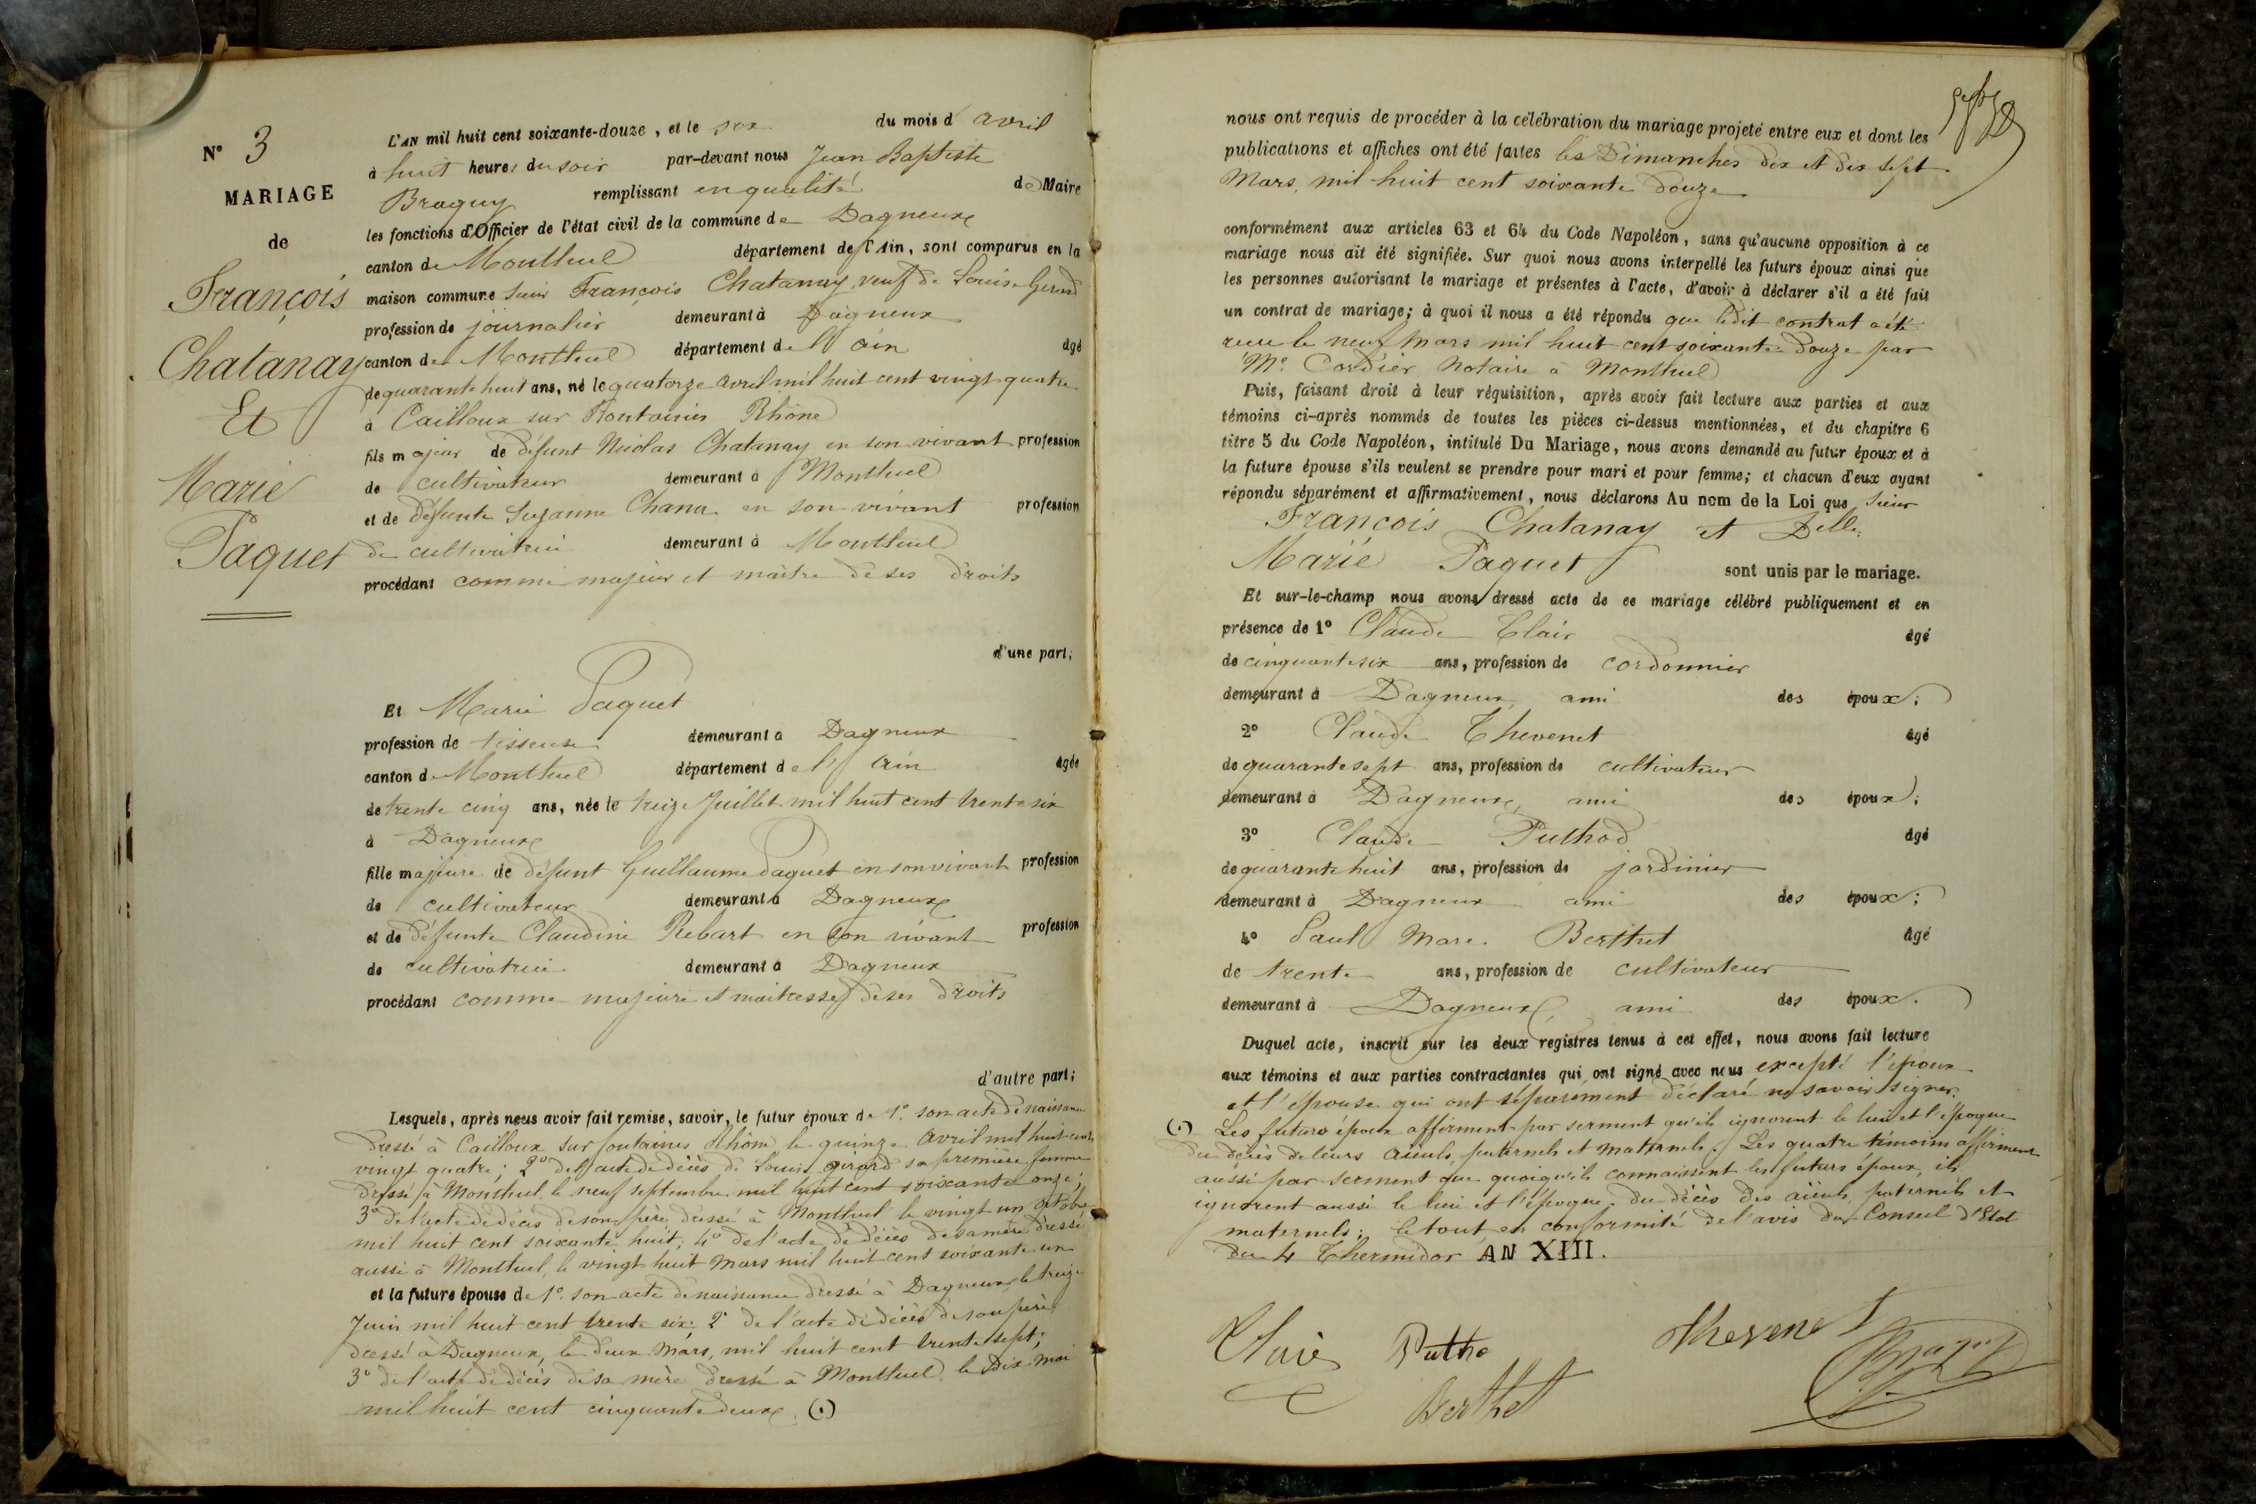 N° 3
MARIAGE
de
François
Chatanay
Et
Marie
Paquet
L'AN mil huit cent soixante-douze, et le six du mois d'avril
à huit heures du soir par-devant nous Jean Baptiste
Braguy remplissant en qualité de Maire
les fonctions d'Officier de l'état civil de la commune de Dagneux
canton de Montluel département de l'Ain, sont comparus en la
maison commune Sieur François Chatanay veuf de Louise Girard
profession de journalier demeurant à Dagneux
canton de Montluel département de l'ain âgé
de quarante huit ans, né le quatorze avril mil huit cent vingt quatre
à Cailloux sur Fontaines Rhône
fils majeur de défunt Nicolas Chatanay en son vivant profession
de cultivateur demeurant à Montluel
et de défunte Suzanne Chana en son vivant profession
de cultivatrice demeurant à Montluel
procédant comme majeur et maître de ses droits
d'une part;
Et Marie Paquet
profession de tisseuse demeurant à Dagneux
canton de Montluel département de l'Ain âgée
de trente cinq ans, née le treize Juillet mil huit cent trente six
à Dagneux
fille majeure de défunt Guillaume Paquet en son vivant profession
de cultivateur demeurant à Dagneux
et de défunte Claudine Rebart en son vivant profession
de cultivatrice demeurant à Dagneux
procédant comme majeure et maitresse de ses droits
d'autre part;
Lesquels, après nous avoir fait remise, savoir, le futur époux de 1° son acte de naissance
dressé à Cailloux sur fontaines Rhône le quinze Avril mil huit cent
vingt quatre; 2° de l'acte de décès de Louise girard sa première femme
dressé à Montluel, le neuf septembre mil huit cent soixante onze;
3° de l'acte de décès de son père dressé à Montluel le vingt un octobre
mil huit cent soixante huit; 4° de l'acte de décès de sa mère dressé
aussi à Montluel, le vingt huit mars mil huit cent soixante un
et la future épouse de 1° son acte de naissance dressé à Dagneux, le treize
Juin mil huit cent trente six; 2° de l'acte de décès de son père
dressé à Dagneux, le deux Mars, mil huit cent trente sept;
3° de l'acte de décès de sa mère dressé à Montluel, le Dix mai
mil huit cent cinquante deux. (.)
nous ont requis de procéder à la célébration du mariage projeté entre eux et dont les
publications et affiches ont été faites les Dimanches dix et dix sept
Mars, mil huit cent soixante douze
conformément aux articles 63 et 64 du Code Napoléon, sans qu'aucune opposition à ce
mariage nous ait été signifiée. Sur quoi nous avons interpellé les futurs époux ainsi que
les personnes autorisant le mariage et présentes à l'acte, d'avoir à déclarer s'il a été fait
un contrat de mariage; à quoi il nous a été répondu que ledit contrat a été
reçu le neuf Mars mil huit cent soixante-douze par
Me Cordier Notaire à Montluel
Puis, faisant droit à leur réquisition, après avoir fait lecture aux parties et aux
témoins ci-après nommés de toutes les pièces ci-dessus mentionnées, et du chapitre 6
titre 5 du Code Napoléon, intitulé Du Mariage, nous avons demandé au futur époux et à
la future épouse s'ils veulent se prendre pour mari et pour femme; et chacun d'eux ayant
répondu séparément et affirmativement, nous déclarons Au nom de la Loi que Sieur
François Chatanay et Delle
Marie Paquet sont unis par le mariage.
Et sur-le-champ nous avons dressé acte de ce mariage célébré publiquement et en
présence de 1° Claude Clair âgé
de cinquante six ans, profession de cordonnier
demeurant à Dagneux, ami des époux;
2° Claude Thevenet âgé
de quarante sept ans, profession de cultivateur
demeurant à Dagneux, ami des époux;
3° Claude Puthod âgé
de quarante huit ans, profession de jardinier
demeurant à Dagneux ami des époux;
4° Paul Marc Berthet âgé
de trente ans, profession de cultivateur
demeurant à Dagneux, ami des époux.
Duquel acte, inscrit sur les deux registres tenus à cet effet, nous avons fait lecture
aux témoins et aux parties contractantes qui ont signé avec nous excepté l'époux
et l'épouse qui ont séparément déclaré ne savoir signer.
(.) Les futurs époux affirment par serment qu'ils ignorent le lieu et l'époque
du décès de leurs aïeuls paternels et maternels. Les quatre témoins affirment
aussi par serment que quoiqu'ils connaissent les futurs époux, ils
ignorent aussi le lieu et l'époque du décès des aïeuls paternels et
maternels; le tout en conformité de l'avis du Conseil d'Etat
du 4 Thermidor AN XIII.
Clair Putho Thevenet
Berthet Braguy